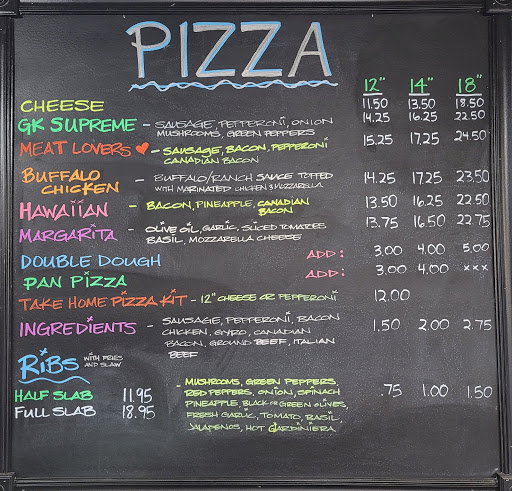 PIZZA
12" 14" 18"
CHEESE 11.50 13.50 18.50
GK SUPREME - SAUSAGE, PEPPERONI, ONION 14.25 16.25 22.50
MUSHROOMS, GREEN PEPPERS
MEAT LOVERS ♥ - SAUSAGE, BACON, PEPPERONI 15.25 17.25 24.50
CANADIAN BACON
BUFFALO CHICKEN - BUFFALO/RANCH SAUCE TOPPED 14.25 17.25 23.50
WITH MARINATED CHICKEN & MOZZARELLA
HAWAIIAN - BACON, PINEAPPLE, CANADIAN 13.50 16.25 22.50
BACON
MARGARITA - OLIVE OIL, GARLIC, SLICED TOMATOES 13.75 16.50 22.75
BASIL, MOZZARELLA CHEESE
DOUBLE DOUGH ADD: 3.00 4.00 5.00
PAN PIZZA ADD: 3.00 4.00 xxx
TAKE HOME PIZZA KIT - 12" CHEESE OR PEPPERONI 12.00
INGREDIENTS - SAUSAGE, PEPPERONI, BACON 1.50 2.00 2.75
CHICKEN, GYRO, CANADIAN
BACON, GROUND BEEF, ITALIAN
BEEF
RIBS WITH FRIES
AND SLAW
HALF SLAB 11.95
FULL SLAB 18.95
- MUSHROOMS, GREEN PEPPERS .75 1.00 1.50
RED PEPPERS, ONION, SPINACH
PINEAPPLE, BLACK OR GREEN OLIVES,
FRESH GARLIC, TOMATO, BASIL,
JALAPENOS, HOT GIARDINIERA